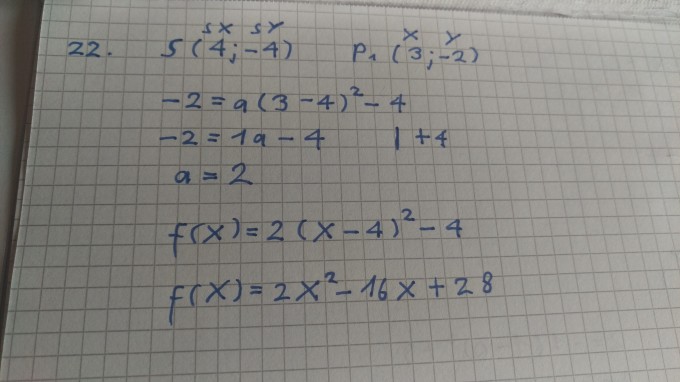 SX SY X Y
22. S(4;-4) P₁(3;-2)
-2=a(3-4)²-4
-2=1a-4 |+4
a=2
f(X)=2(X-4)²-4
f(X)=2X²-16X+28